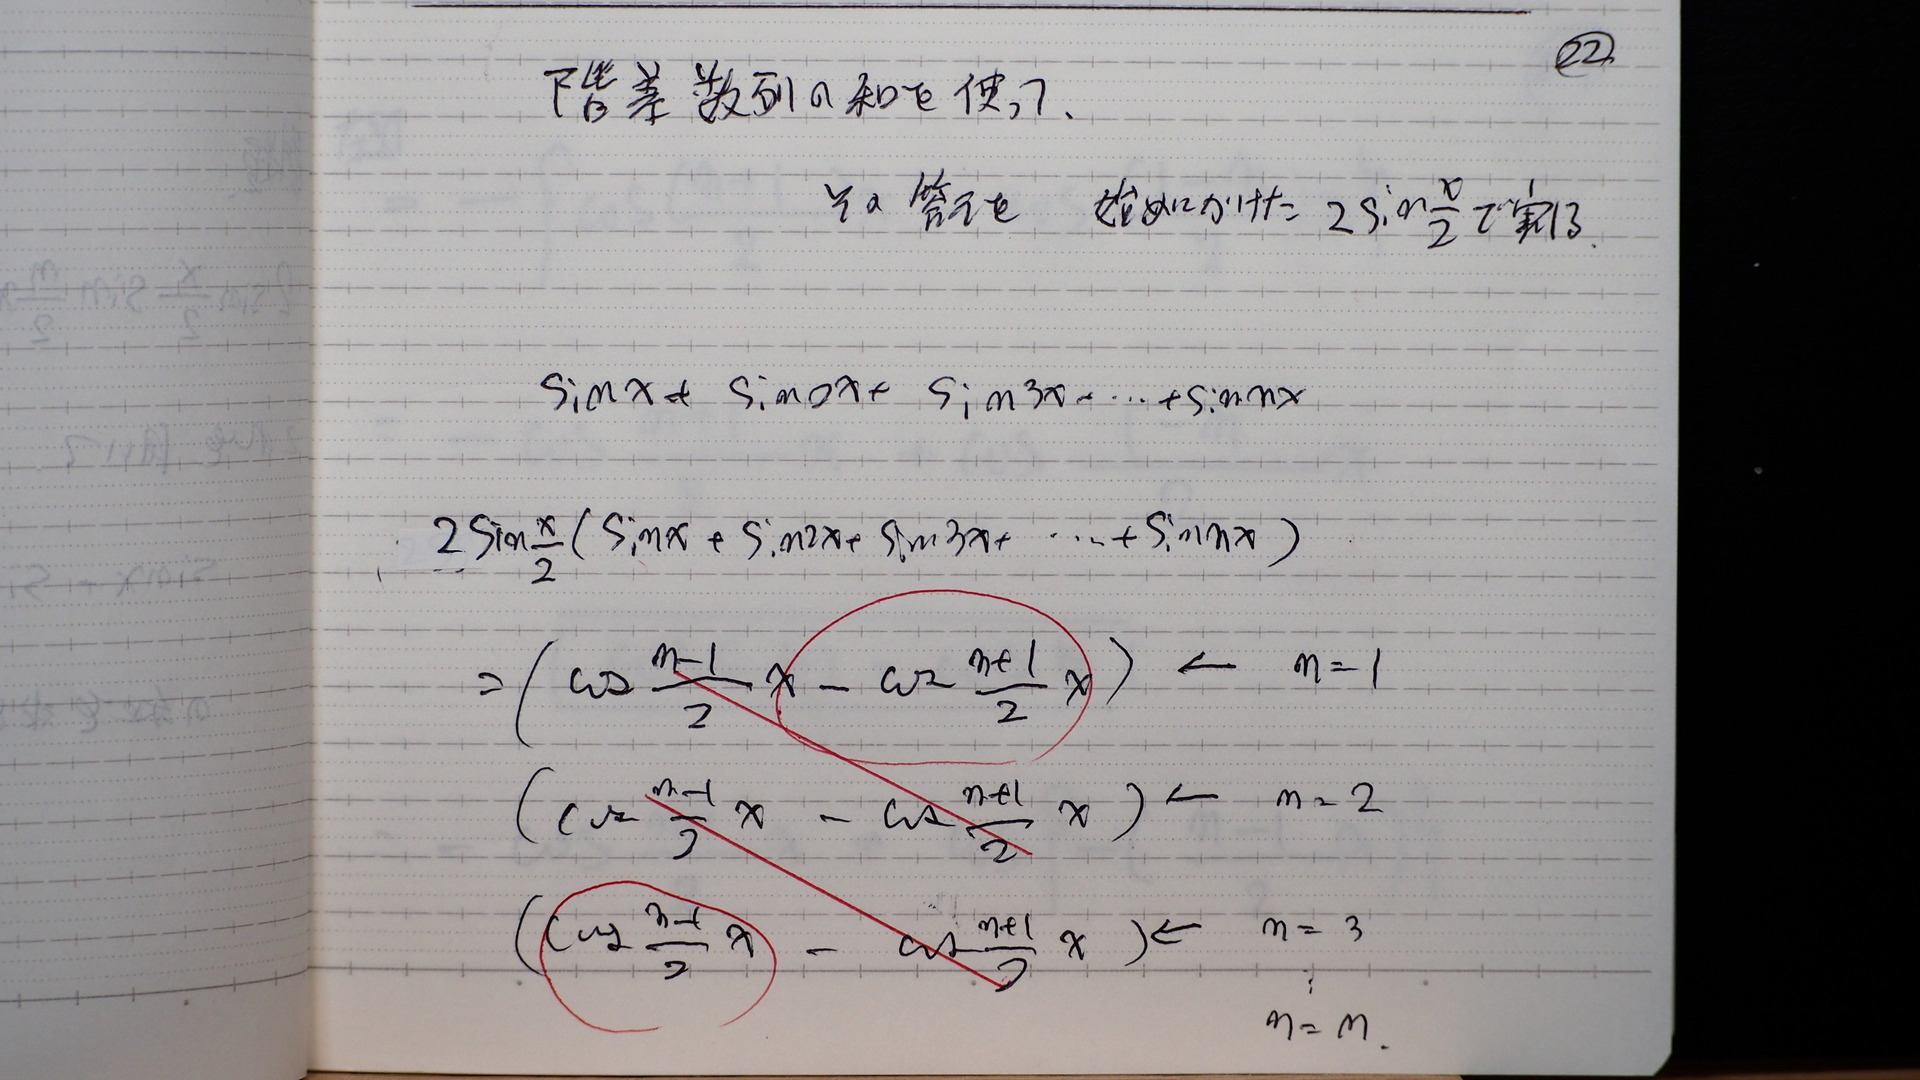 22
階差数列の和を使って、
その答えを 始めにかけた 2sin x/2 で割る.
sin x + sin 2x + sin 3x + ... + sin nx
2 sin x/2 ( sin x + sin 2x + sin 3x + ... + sin nx )
= ( cos n-1/2 x - cos n+1/2 x ) ← n=1
( cos n-1/2 x - cos n+1/2 x ) ← n=2
( cos n-1/2 x - cos n+1/2 x ) ← n=3
⋮
n=n.